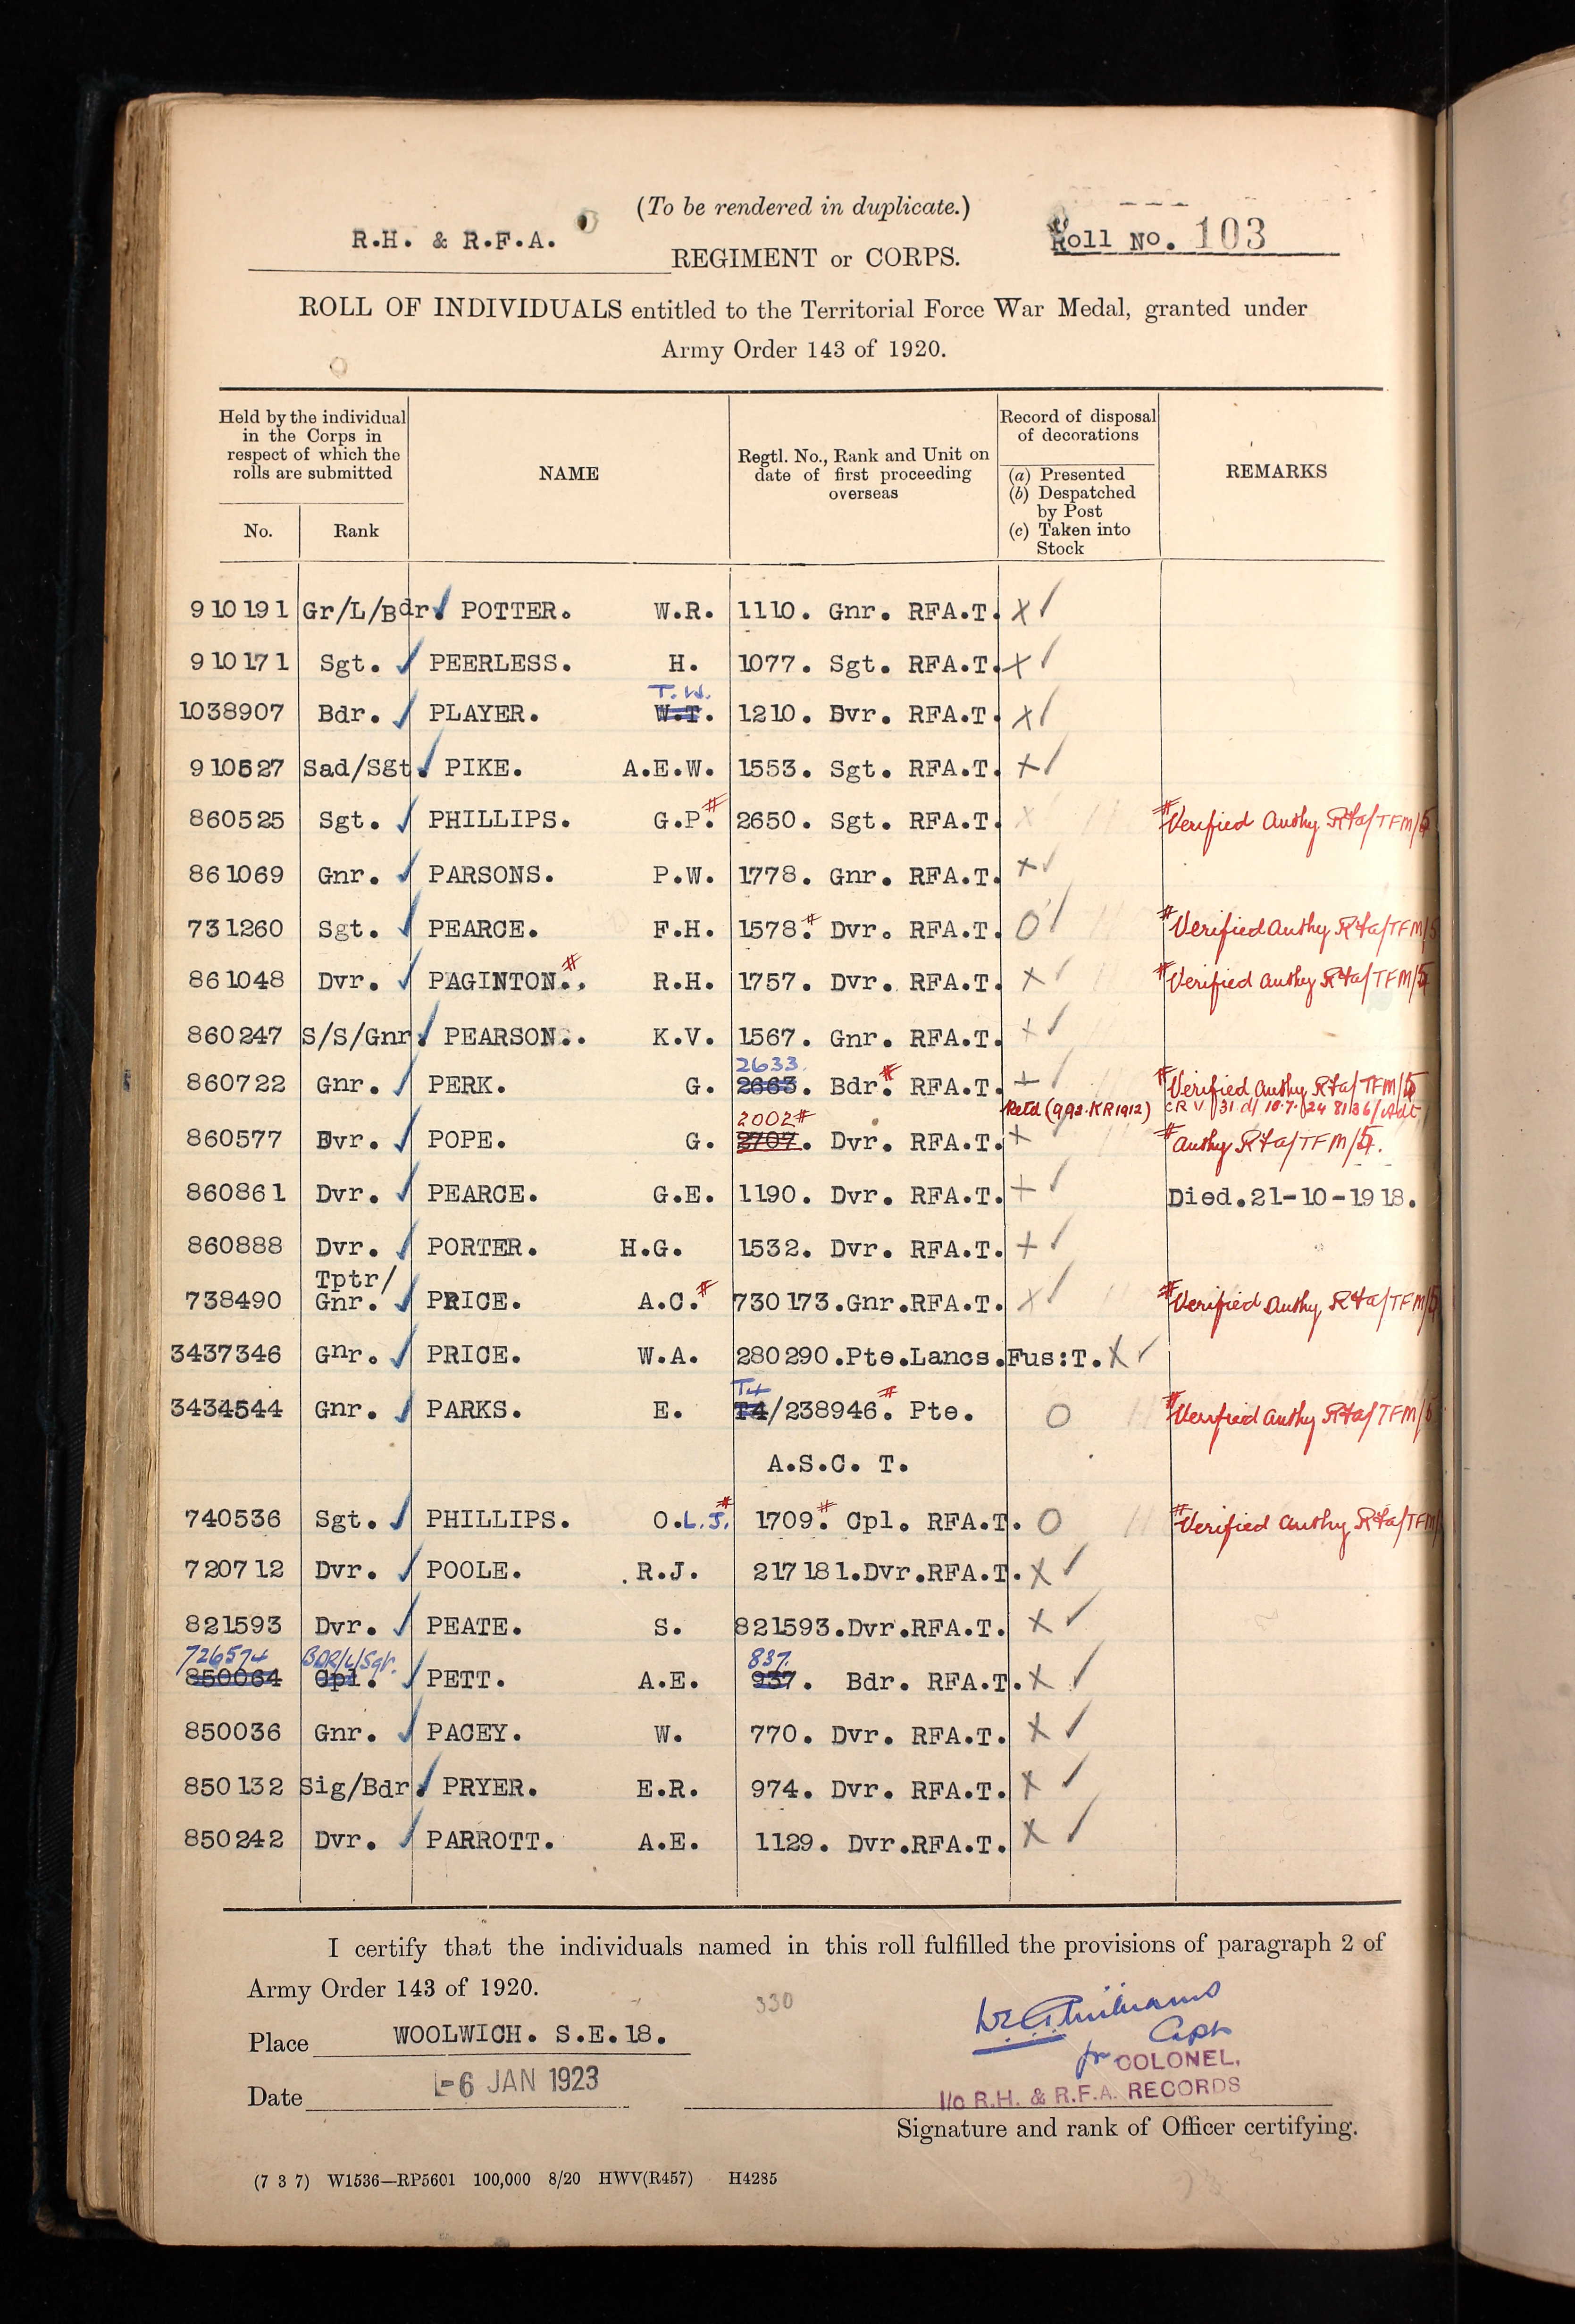 (To be rendered in duplicate.)
R.H. & R.F.A. REGIMENT or CORPS. Roll No. 103
ROLL OF INDIVIDUALS entitled to the Territorial Force War Medal, granted under
Army Order 143 of 1920.
Held by the individual in the Corps in respect of which the rolls are submitted
No. Rank
NAME
Regtl. No., Rank and Unit on date of first proceeding overseas
Record of disposal of decorations
(a) Presented
(b) Despatched by Post
(c) Taken into Stock
REMARKS
910191 Gr/L/Bdr. POTTER. W.R. 1110. Gnr. RFA.T. X
910171 Sgt. PEERLESS. H. 1077. Sgt. RFA.T. X
T.W.
1038907 Bdr. PLAYER. W.T. 1210. Dvr. RFA.T. X
910527 Sad/Sgt. PIKE. A.E.W. 1553. Sgt. RFA.T. X
860525 Sgt. PHILLIPS. G.P.# 2650. Sgt. RFA.T. X #Verified Authy R.F.a/TFM/5
861069 Gnr. PARSONS. P.W. 1778. Gnr. RFA.T. X
731260 Sgt. PEARCE. F.H. 1578.# Dvr. RFA.T. O #Verified Authy R.F.a/TFM/5
861048 Dvr. PAGINTON.# R.H. 1757. Dvr. RFA.T. X #Verified Authy R.F.a/TFM/5
860247 S/S/Gnr. PEARSON.. K.V. 1567. Gnr. RFA.T. X
2633.
860722 Gnr. PERK. G. 2663. Bdr.# RFA.T. X #Verified Authy R.F.a/TFM/5
Retd (992.KR1912) CRV/31 d/ 10.7.24 8136/Adt.
2002#
860577 Dvr. POPE. G. 2707. Dvr. RFA.T. X #Authy R.F.a/TFM/5.
860861 Dvr. PEARCE. G.E. 1190. Dvr. RFA.T. X Died.21-10-1918.
860888 Dvr. PORTER. H.G. 1532. Dvr. RFA.T. X
Tptr/
738490 Gnr. PRICE. A.C.# 730173.Gnr.RFA.T. X #Verified Authy R.F.a/TFM/5
3437346 Gnr. PRICE. W.A. 280290.Pte.Lancs.Fus:T. X
T4
3434544 Gnr. PARKS. E. T4/238946.# Pte. O #Verified Authy R.F.a/TFM/5
A.S.C. T.
740536 Sgt. PHILLIPS. O.L.J.# 1709.# Cpl. RFA.T. O #Verified Authy R.F.a/TFM/
720712 Dvr. POOLE. R.J. 217181.Dvr.RFA.T. X
821593 Dvr. PEATE. S. 821593.Dvr.RFA.T. X
726574 BDR/L/Sgt. 837.
850064 Cpl. PETT. A.E. 937. Bdr. RFA.T. X
850036 Gnr. PACEY. W. 770. Dvr. RFA.T. X
850132 Sig/Bdr. PRYER. E.R. 974. Dvr. RFA.T. X
850242 Dvr. PARROTT. A.E. 1129. Dvr.RFA.T. X
I certify that the individuals named in this roll fulfilled the provisions of paragraph 2 of
Army Order 143 of 1920.
330
Place WOOLWICH. S.E.18.
Capt
for COLONEL.
Date -6 JAN 1923
I/c R.H. & R.F.A. RECORDS
Signature and rank of Officer certifying.
(7 3 7) W1536—RP5601 100,000 8/20 HWV(R457) H4285